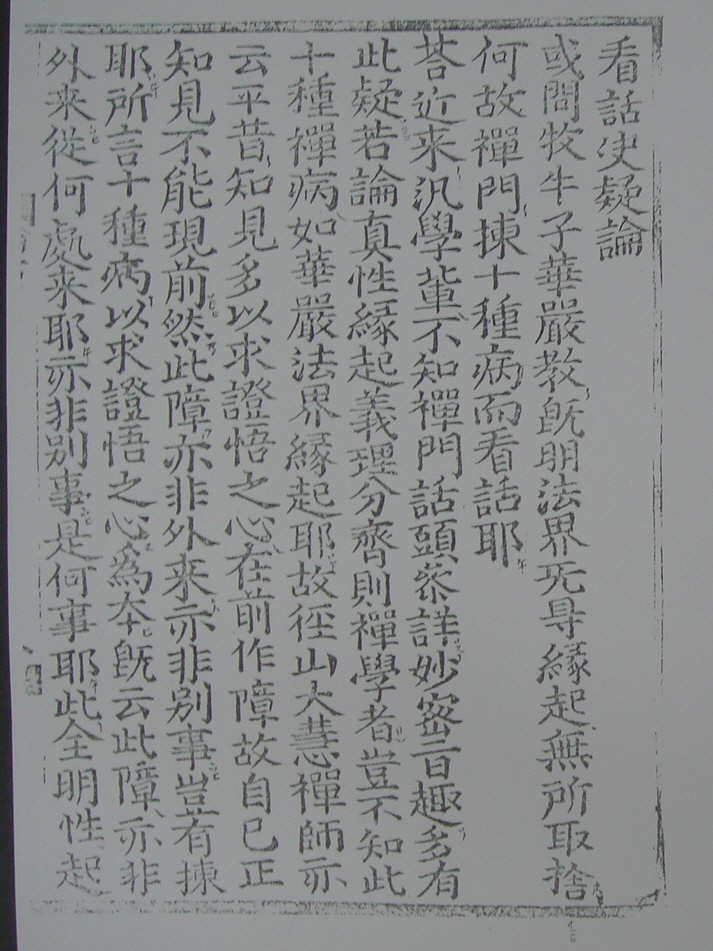 看話决疑論
或問牧牛子華嚴教旣明法界旡㝵緣起無所取捨
何故禪門揀十種病而看話耶
荅近来汎學輩不知禪門話頭叅詳妙宻旨趣多有
此疑若論真性緣起義理分齊則禪學者豈不知此
十種禪病如華嚴法界緣起耶故徑山大慧禪師亦
云平昔知見多以求證悟之心在前作障故自已正
知見不能現前然此障亦非外来亦非别事豈有揀
耶所言十種病以求證悟之心為夲旣云此障亦非
外来從何處来耶亦非别事是何事耶此全明性起